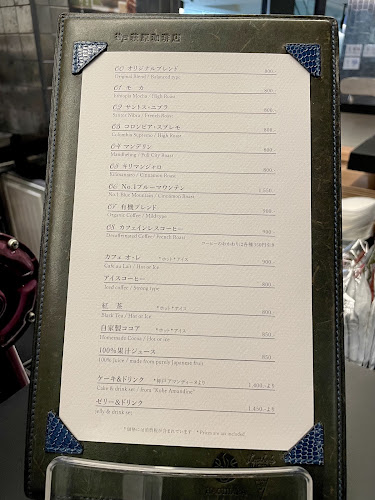 00 オリジナルブレンド 800.-
Original Blend / Balanced type
01 モ カ 800.-
Ethiopia Mocha / High Roast
02 サントス・ニブラ 800.-
Santos Nibra / French Roast
03 コロンビア・スプレモ 800.-
Colombia Supremo / High Roast
04 マンデリン 800.-
Mandheling / Full City Roast
05 キリマンジャロ
Kilimanjaro / Cinnamon Roast
06 No.1ブルーマウンテン
No.1 Blue Mountain / Cinnamon Roast
07 有機ブレンド 900.-
Organic Coffee / Mild type
08 カフェインレスコーヒー 900.-
Decaffeinated Coffee / French Roast
カフェ オ・レ *ホット*アイス 900.-
Café au Lait / Hot or Ice
アイスコーヒー 800.-
Iced coffee / Strong type
紅 茶 *ホット*アイス 800.-
Black Tea / Hot or Ice
自家製ココア *ホット*アイス 850.-
Homemade Cocoa / Hot or Ice
100%果汁ジュース 850.-
100% Juice / made from purely Japanese fruit
ケーキ&ドリンク *神戸アマンディーヌより 1,400.-より
Cake & drink set / from "Kobe Amandine"
ゼリー&ドリンク 1,450.-より
Jelly & drink set
*価格には消費税が含まれています *Prices are tax included.